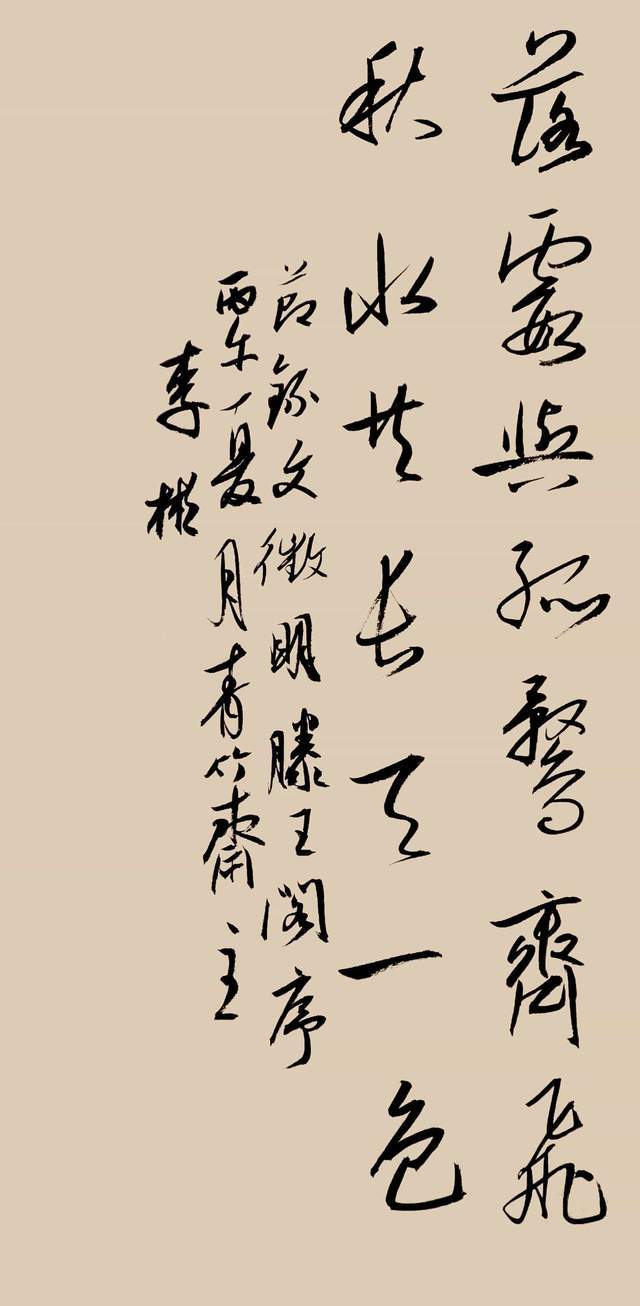 落霞與孤鶩齊飛
秋水共長天一色
節錄文徵明滕王閣序
丙午夏月青竹齋主
李彬